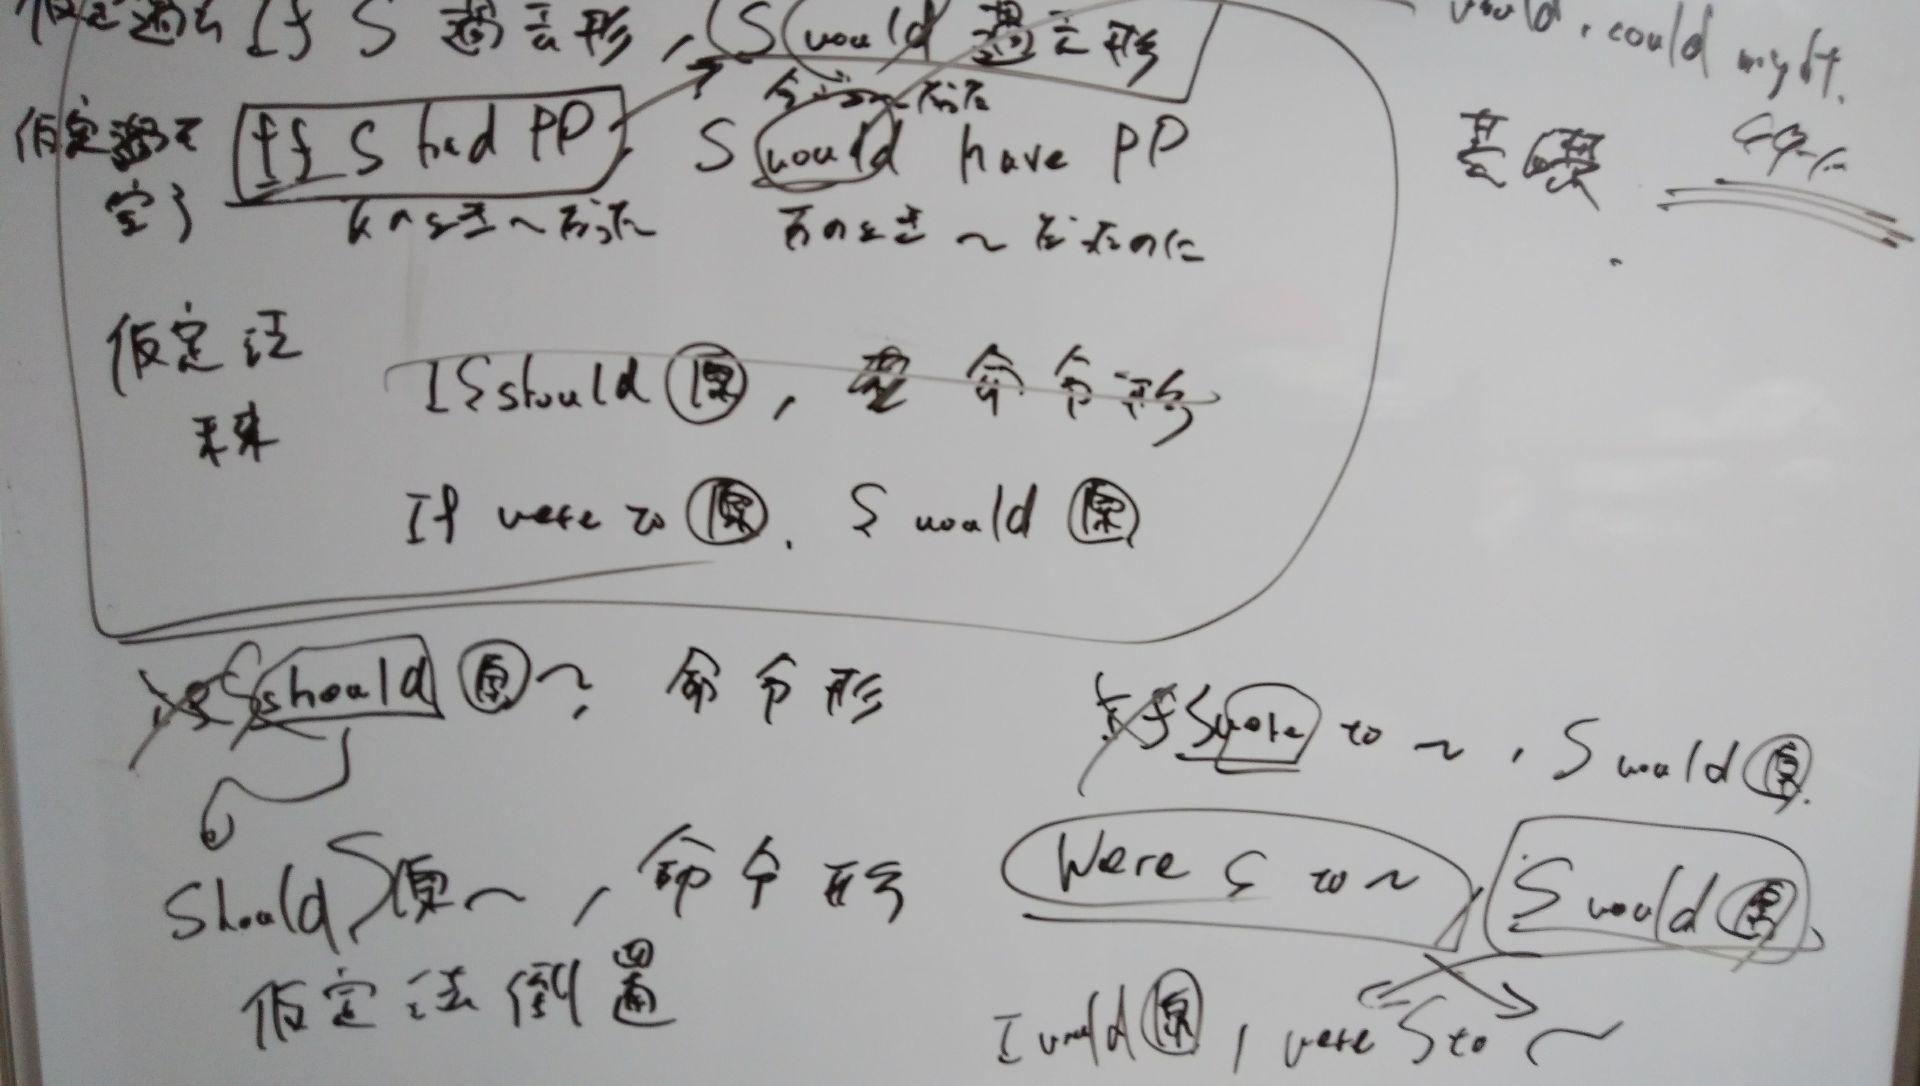 仮定過去 If S 過去形, S would 過去形
would, could might.
仮定過去完了 If S had PP, S would have PP
基礎
あのとき〜だったのに
仮定法未来
If S should 原, 命令形
If were to 原, S would 原
If S should 原 〜, 命令形
If S were to 〜, S would 原
Should S 原 〜, 命令形
Were S to 〜, S would 原
仮定法倒置
I would 原, were S to 〜